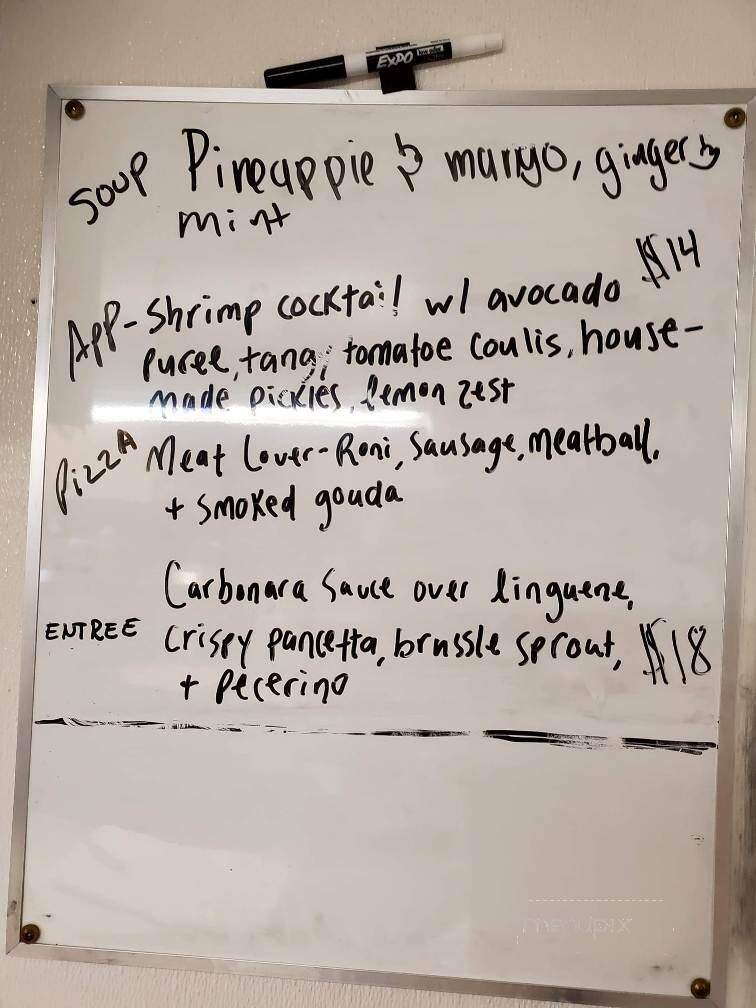 EXPO
SOUP Pineapple & mango, ginger &
mint
App - Shrimp cocktail w/ avocado $14
puree, tangy tomatoe coulis, house-
made pickles, lemon zest
Pizza Meat Lover - Roni, Sausage, Meatball,
+ smoked gouda
Carbonara Sauce over linguene,
ENTREE Crispy pancetta, brussle sprout, $18
+ pecerino
menupix